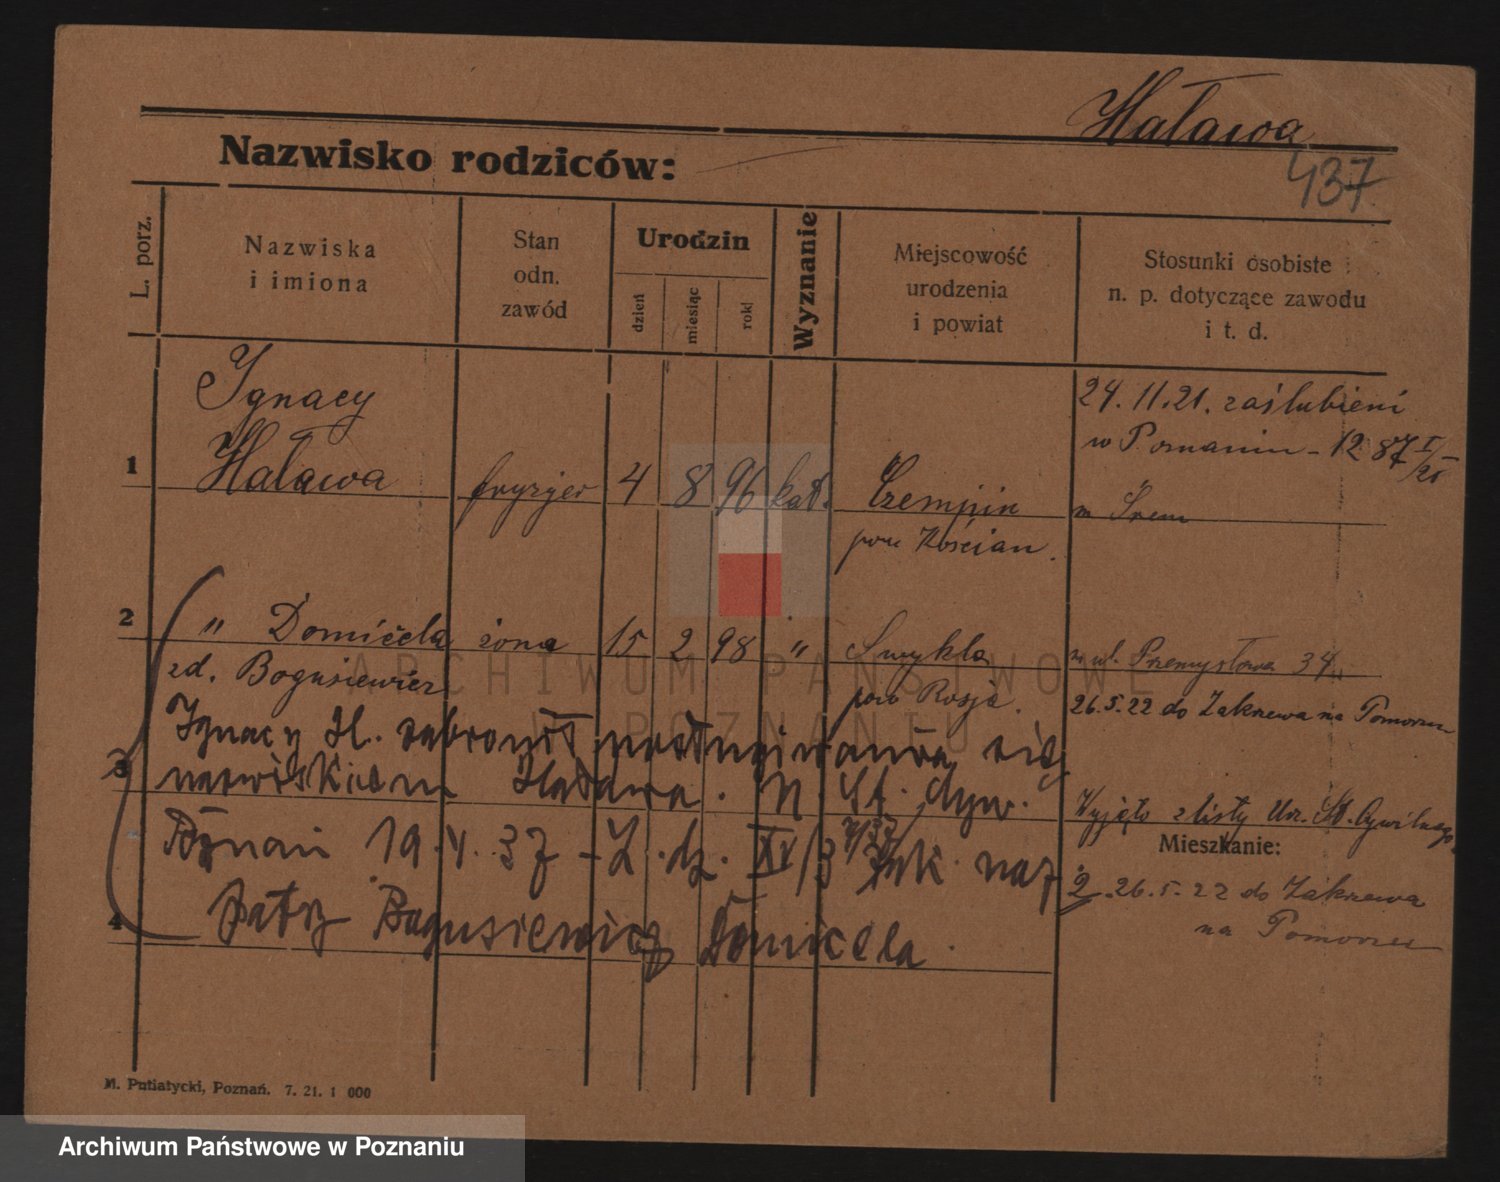 Haława
437
Nazwisko rodziców:
L. porz.
Nazwiska
i imiona
Stan
odn.
zawód
Urodzin
dzień
miesiąc
rok
Wyznanie
Miejscowość
urodzenia
i powiat
Stosunki osobiste
n. p. dotyczące zawodu
i t. d.
1
Ignacy
Haława
fryzjer
4
8
96
kat.
Czempin
pow Kościan.
24.11.21. zaślubieni
w Poznaniu - 1287
w Śrem
2
" Domicela
zd. Bogusiewicz
żona
15
2
98
"
Smykla
pow Rosja.
w ul. Przemysłowa 34
26.5.22 do Zakrzewa na Pomorzu
3
Ignacy H. zabronił posługiwania się
nazwiskiem Haława. N. St. dyw.
Poznań 19.V.37 - L. dz. XV/3
Patrz Bogusiewicz Domicela.
4
Wyjęto z listy Urz. St. Cywilnego.
Mieszkanie:
2. 26.5.22 do Zakrzewa
na Pomorzu
M. Putiatycki, Poznań. 7. 21. 1 000
ARCHIWUM PAŃSTWOWE
W POZNANIU
Archiwum Państwowe w Poznaniu